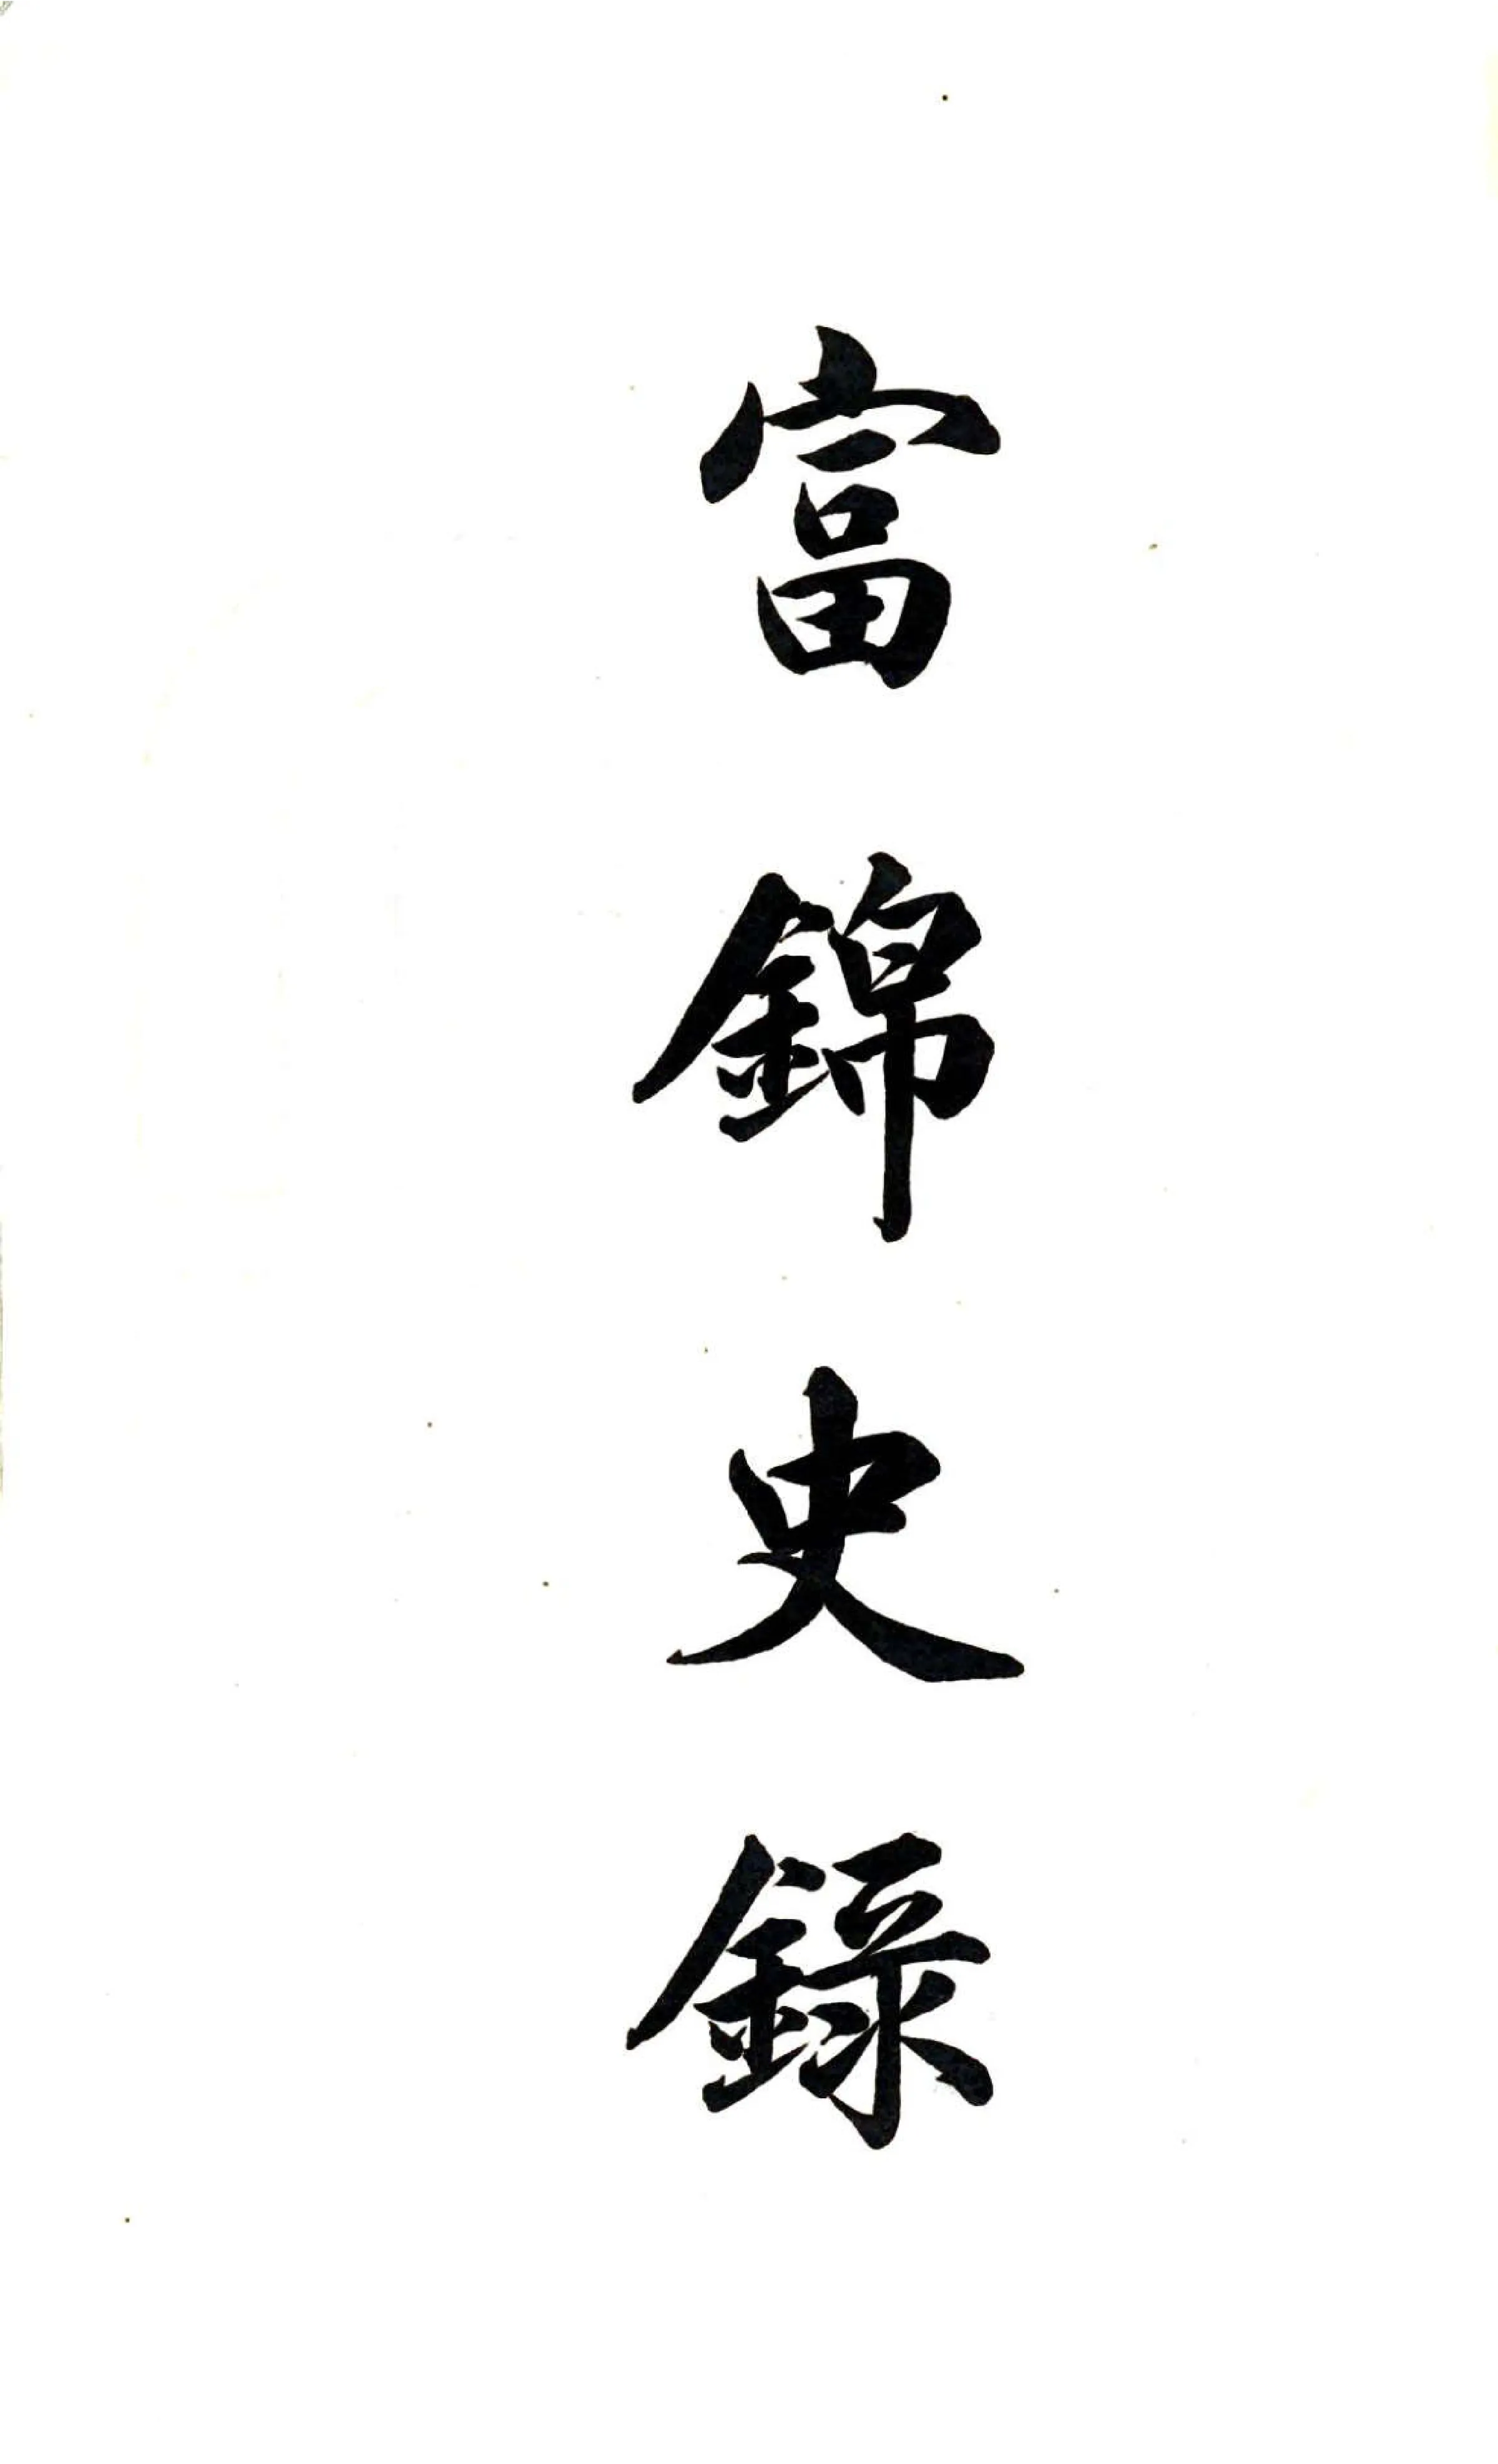 富錦史錄